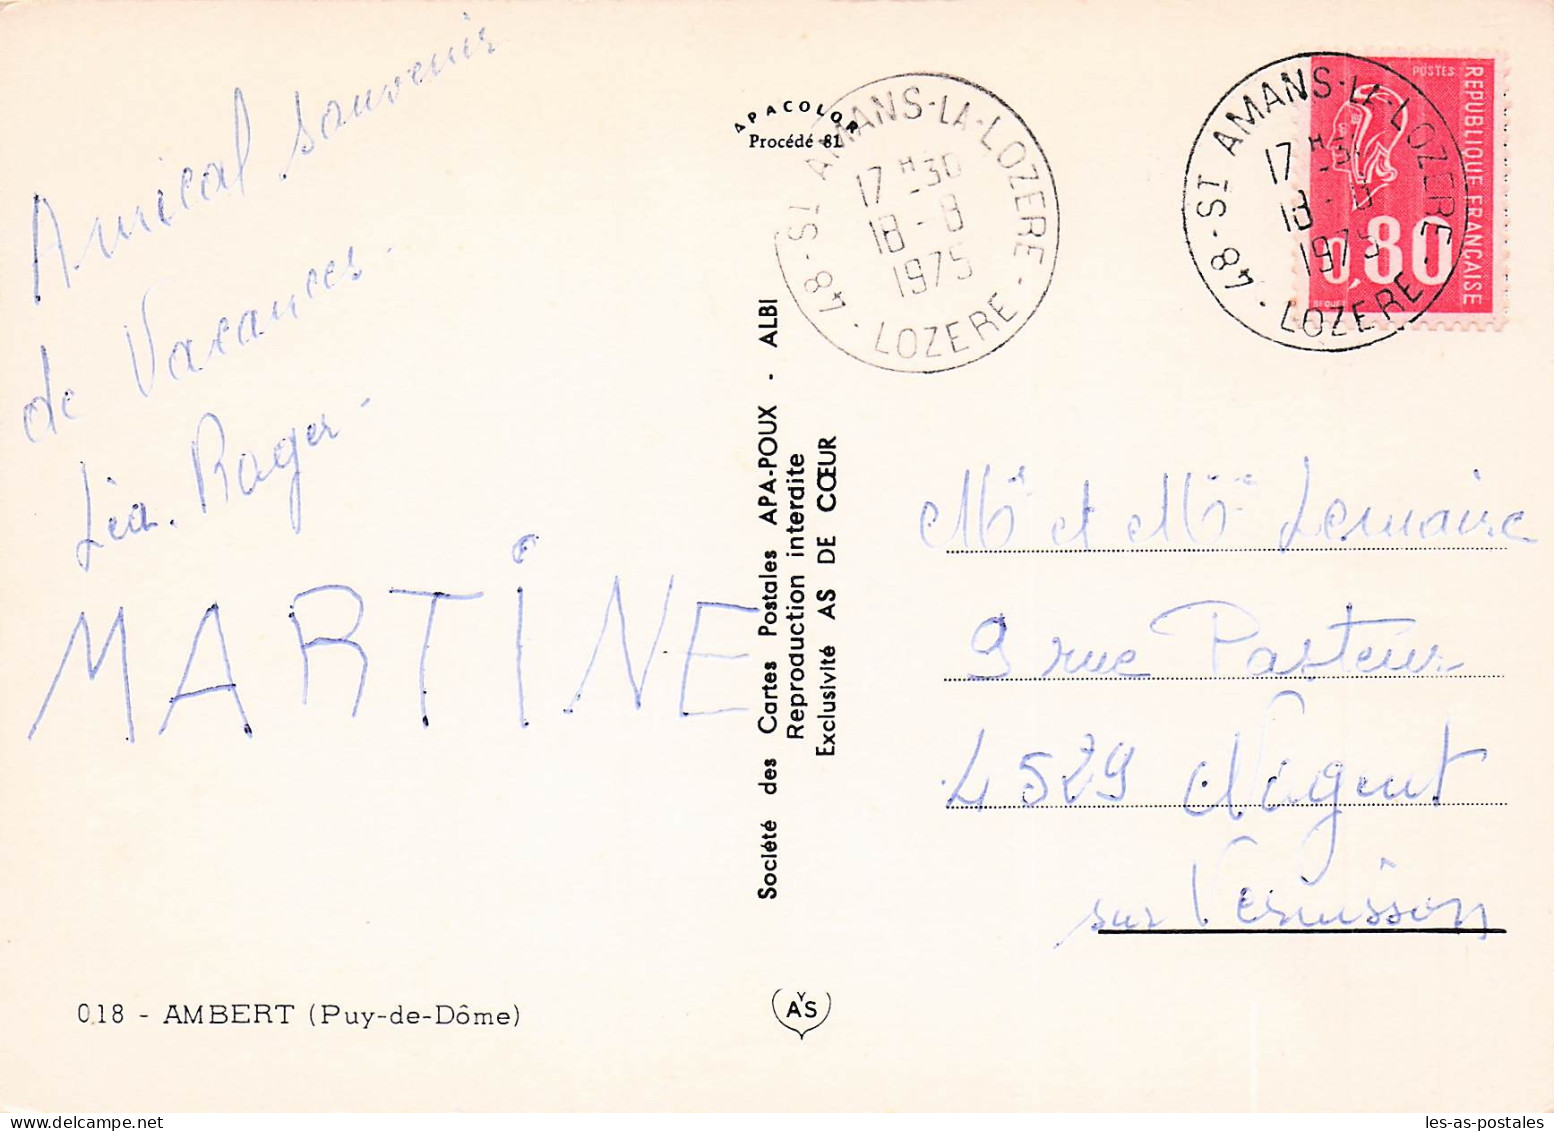 Amical souvenir
de Vacances -
Léa. Roger -
MARTINE
018 - AMBERT (Puy-de-Dôme)
APACOLOR
Procédé 81
Société des Cartes Postales APA-POUX - ALBI
Reproduction interdite
Exclusivité AS DE CŒUR
AS
48 - ST AMANS-LA-LOZERE - LOZERE -
17 H -30
18 - 8
1975
48 - ST AMANS-LA-LOZERE - LOZERE -
17 H -30
18 - 8
1975
POSTES
REPUBLIQUE FRANCAISE
0,80
BEQUET
Mr et Mme Lemaire
9 rue Pasteur
4529 Nogent
sur Vernisson
les-as-postales